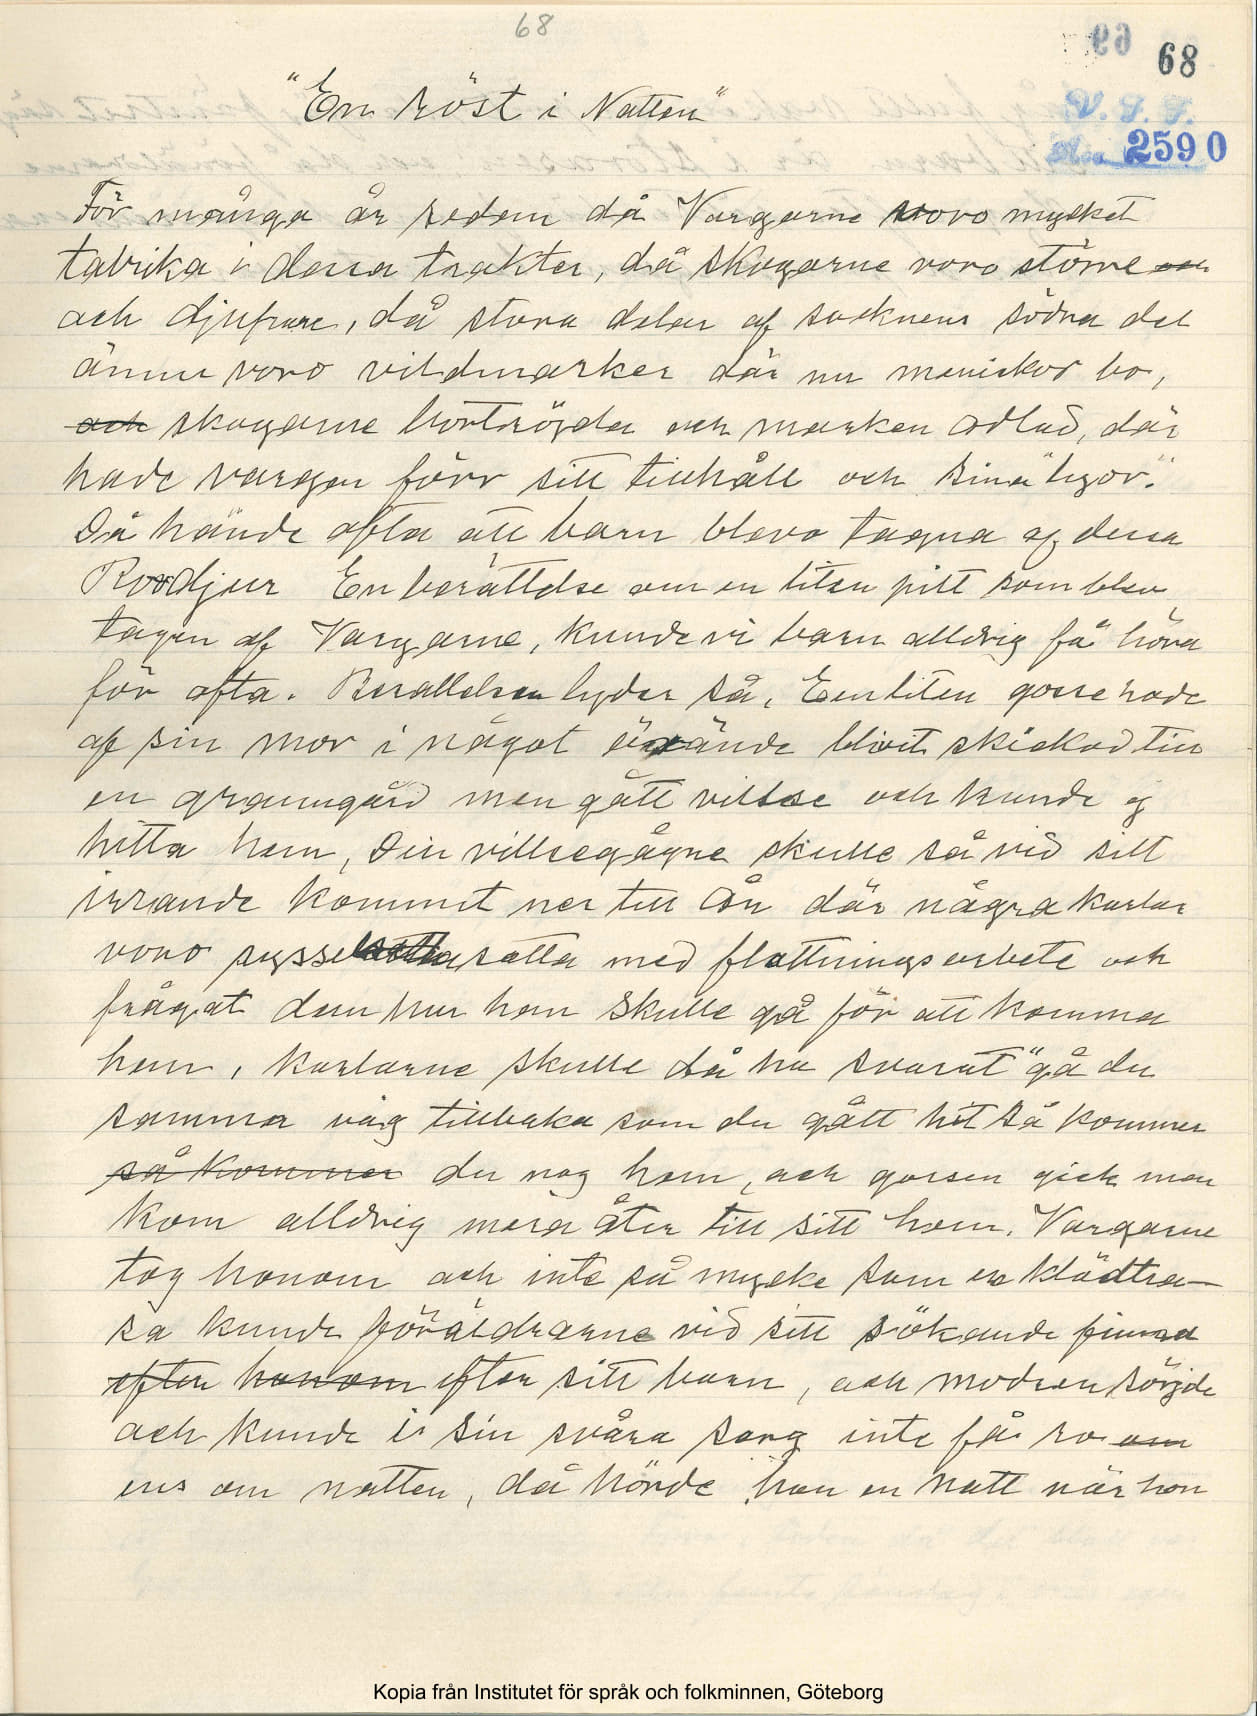 68
68
V. F. F.
2590
"En röst i Natten"
För många år sedan då Vargarne voro mycket
talrika i dessa trakter, då skogarne voro större
och djupare, då stora delar af socknens södra del
ännu voro vildmarker där nu meniskor bo,
och skogarne bortröjda och marken odlad, där
hade vargen förr sitt tillhåll och sina "lyor".
Då hände ofta att barn blevo tagna af dessa
Rovdjur En berättelse om en liten pilt som blev
tagen af Vargarne, kunde vi barn alldrig få höra
för ofta. Berättelsen lyder så, En liten gosse hade
af sin mor i något ärände blivit skickad till
en granngård men gått villse och kunde ej
hitta hem, Den villsegågne skulle så vid sitt
irrande kommit ner till Ån där några karlar
voro sysselsatta med flottningsarbete och
frågat dem hur han skulle gå för att komma
hem, karlarne skulle då ha svarat "gå du
samma väg tillbaka som du gått hit så kommer
så kommer du nog hem, och gossen gick men
kom alldrig mera åter till sitt hem. Vargarne
tog honom och inte så mycke som en klädtra-
sa kunde föräldrarne vid sitt sökande finna
efter honom efter sitt barn, och modren sörjde
och kunde i sin svåra sorg inte få ro om
ens om natten, då hörde hon en natt när hon
Kopia från Institutet för språk och folkminnen, Göteborg